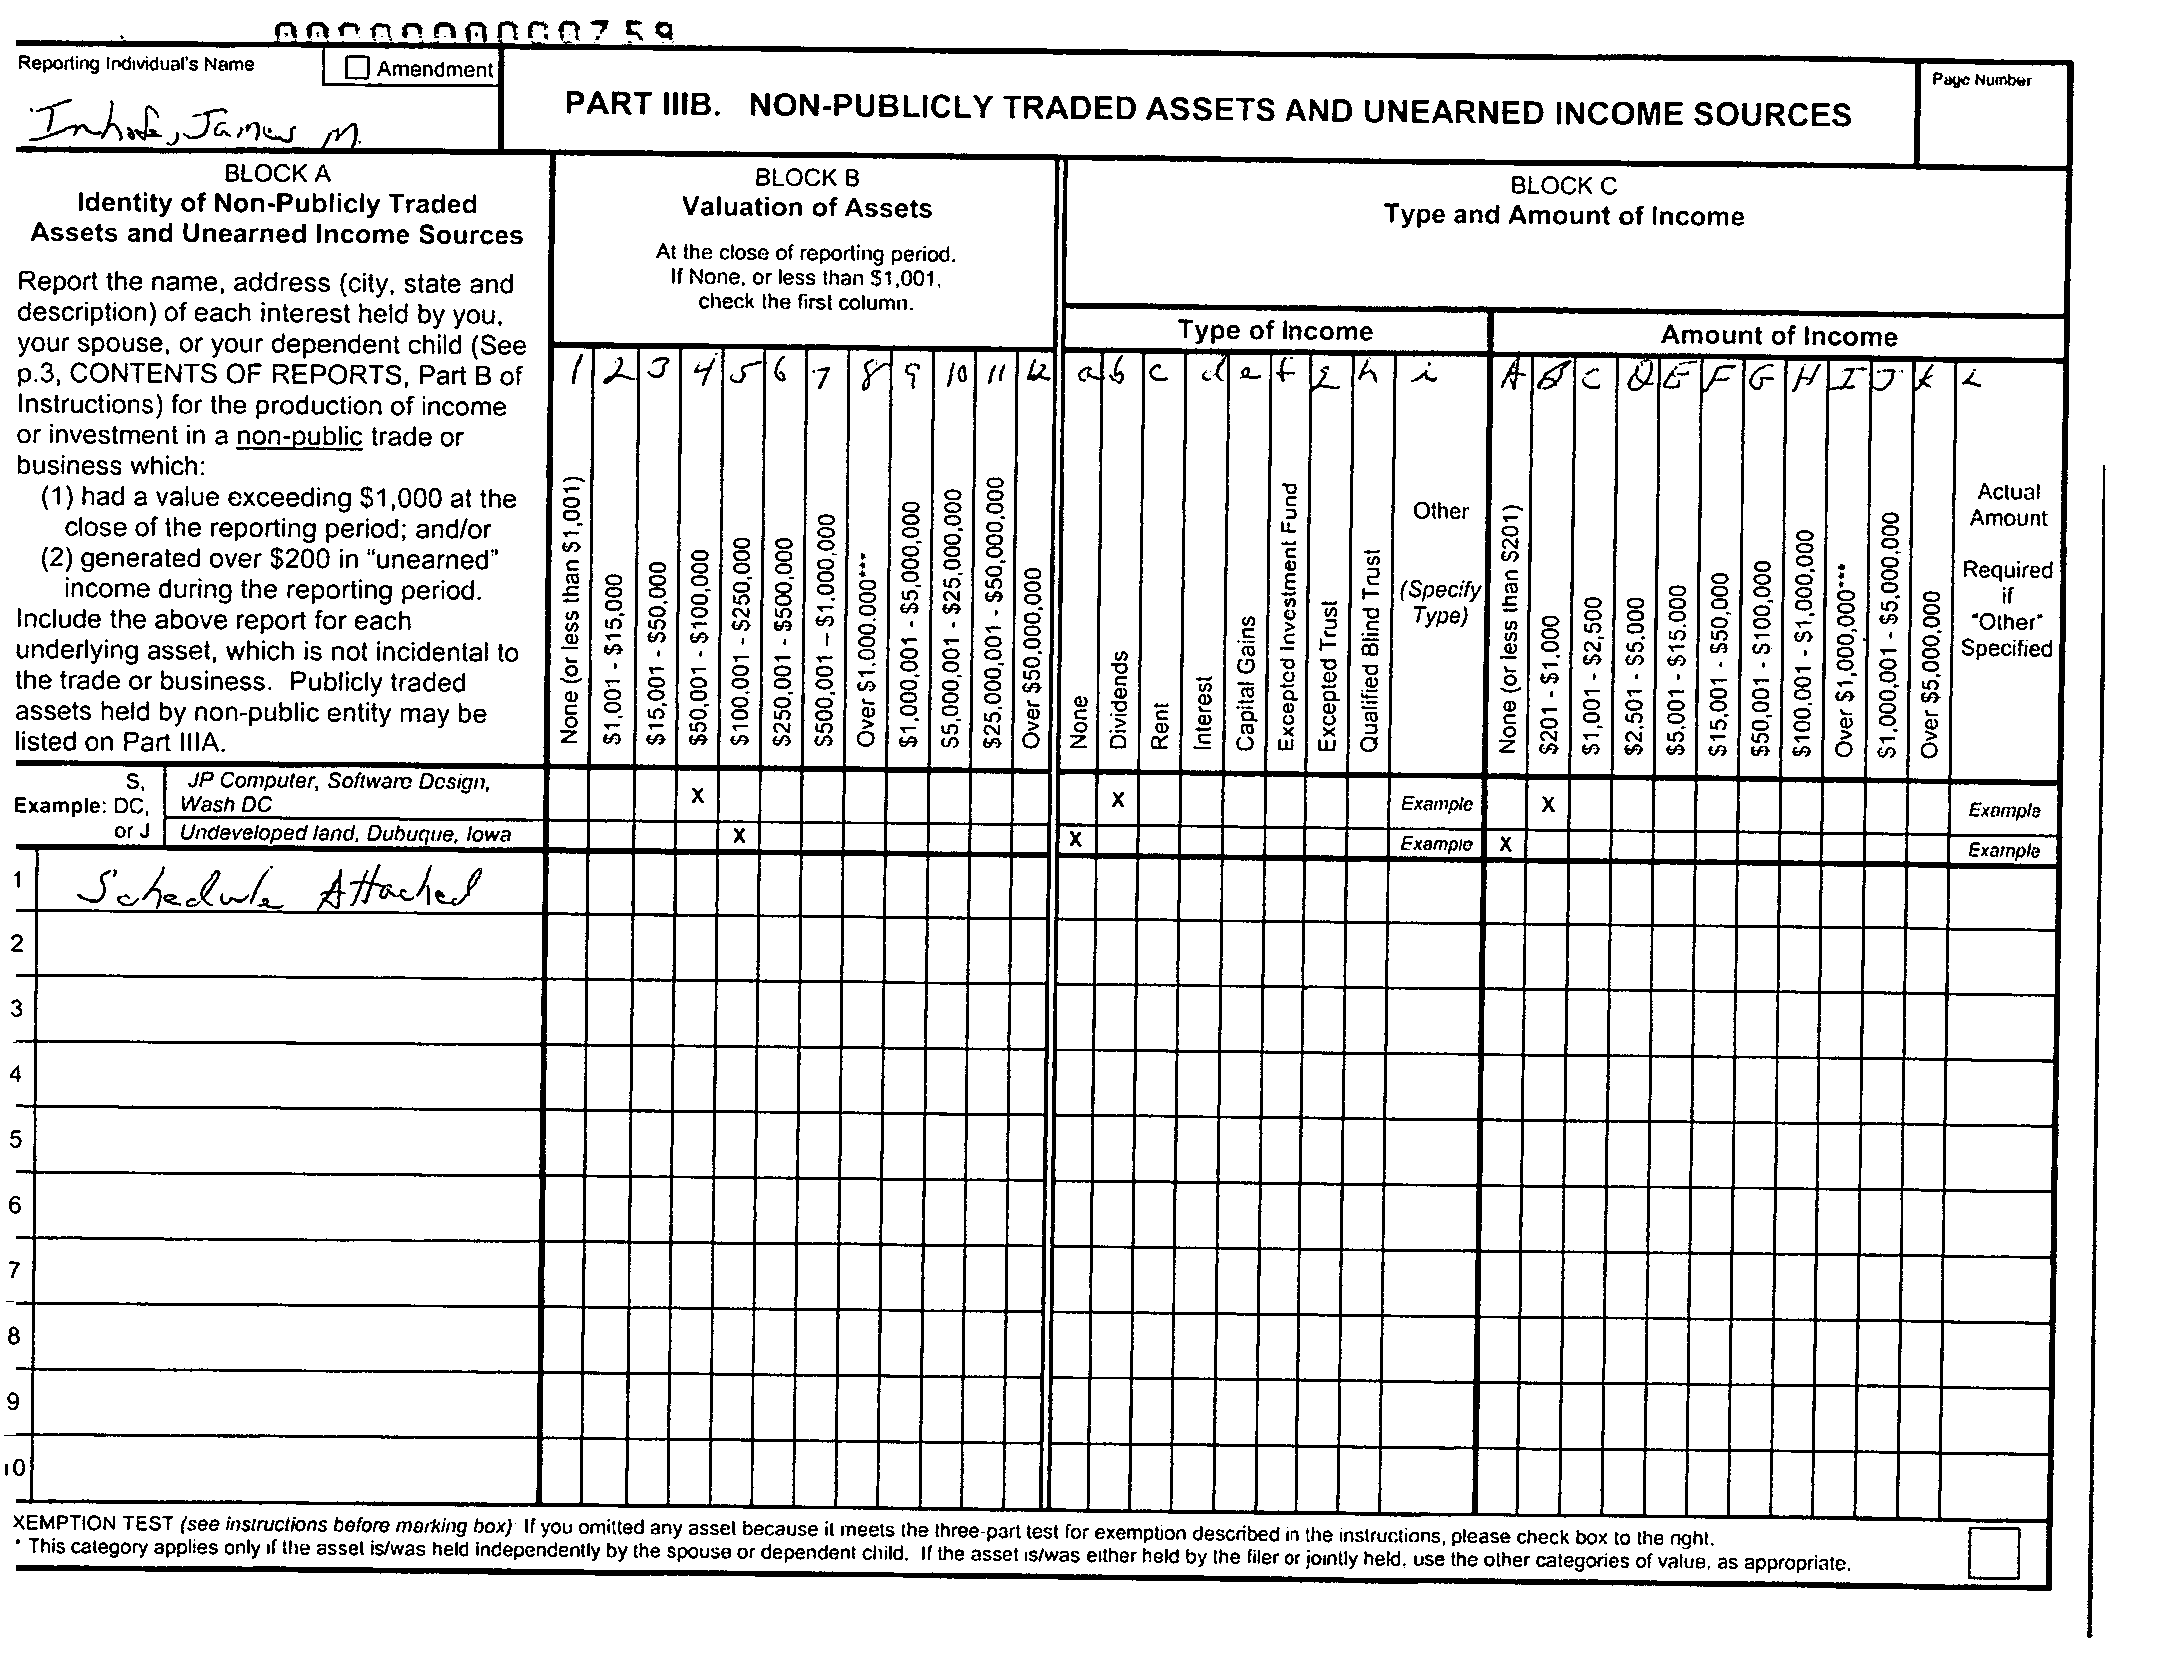 0000000000759
Reporting Individual's Name
Amendment
Inhofe, James M.
PART IIIB. NON-PUBLICLY TRADED ASSETS AND UNEARNED INCOME SOURCES
Page Number
BLOCK A
Identity of Non-Publicly Traded
Assets and Unearned Income Sources
Report the name, address (city, state and
description) of each interest held by you,
your spouse, or your dependent child (See
p.3, CONTENTS OF REPORTS, Part B of
Instructions) for the production of income
or investment in a non-public trade or
business which:
(1) had a value exceeding $1,000 at the
close of the reporting period; and/or
(2) generated over $200 in "unearned"
income during the reporting period.
Include the above report for each
underlying asset, which is not incidental to
the trade or business. Publicly traded
assets held by non-public entity may be
listed on Part IIIA.
BLOCK B
Valuation of Assets
At the close of reporting period.
If None, or less than $1,001,
check the first column.
1 2 3 4 5 6 7 8 9 10 11 12
None (or less than $1,001)
$1,001 - $15,000
$15,001 - $50,000
$50,001 - $100,000
$100,001 - $250,000
$250,001 - $500,000
$500,001 – $1,000,000
Over $1,000,000***
$1,000,001 - $5,000,000
$5,000,001 - $25,000,000
$25,000,001 - $50,000,000
Over $50,000,000
BLOCK C
Type and Amount of Income
Type of Income
a b c d e f g h i
None
Dividends
Rent
Interest
Capital Gains
Excepted Investment Fund
Excepted Trust
Qualified Blind Trust
Other
(Specify
Type)
Amount of Income
A B C D E F G H I J K L
None (or less than $201)
$201 - $1,000
$1,001 - $2,500
$2,501 - $5,000
$5,001 - $15,000
$15,001 - $50,000
$50,001 - $100,000
$100,001 - $1,000,000
Over $1,000,000***
$1,000,001 - $5,000,000
Over $5,000,000
Actual
Amount
Required
if
"Other"
Specified
S,
Example: DC,
or J
JP Computer, Software Design,
Wash DC
X X Example X Example
Undeveloped land, Dubuque, Iowa
X X Example X Example
1 Schedule Attached
2
3
4
5
6
7
8
9
10
XEMPTION TEST (see instructions before marking box) If you omitted any asset because it meets the three-part test for exemption described in the instructions, please check box to the right.
* This category applies only if the asset is/was held independently by the spouse or dependent child. If the asset is/was either held by the filer or jointly held, use the other categories of value, as appropriate.